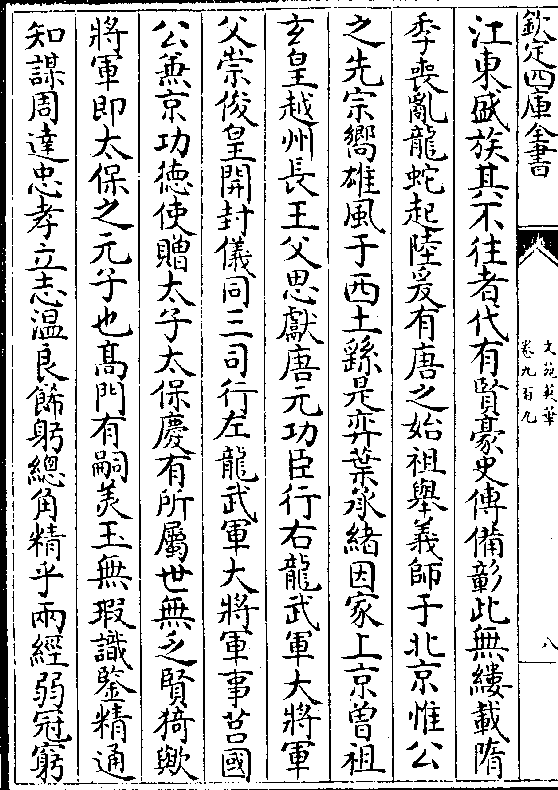 欽定四庫全書
文苑英華
卷九百九
八
江東盛族其不往者代有賢豪史傳備彰此無縷載隋
季喪亂龍蛇起陸爰有唐之始祖舉義師于北京惟公
之先宗嚮雄風于西土繇是弈葉承緒因家上京曾祖
玄皇越州長王父思獻唐元功臣行右龍武軍大將軍
父崇俊皇開封儀同三司行左龍武軍大將軍事莒國
公兼京功德使贈太子太保慶有所屬世無乏賢猗歟
將軍即太保之元子也髙門有嗣美玉無瑕識鑒精通
知謀周達忠孝立志溫良飾躬總角精乎兩經弱冠窮